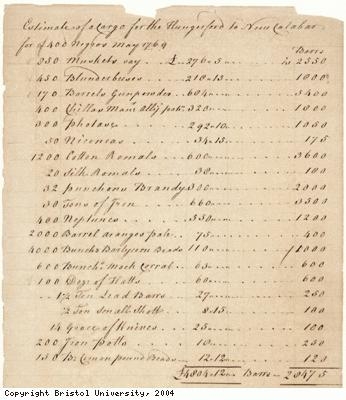 Estimate of a Cargo for the Hungerford to New Calabar
for 400 Negros May 1769
Barrs
850 Muskets say £ 276 " 5 is 2550
450 Blunderbuses 210 " 15 1000
170 Barrels Gunpowder 604 3400
400 328 1000
300 Photaes 292 " 10 1050
50 Niccneas 34 " 15 175
1200 Cotton Romals 600 3600
20 Silk Romals 30 100
32 punchons Brandy 300 2000
30 Tons of Iron 660 3500
400 Neptunes 330 1200
2000 Barrel 75 400
4020 Bunchs Barlycorn Beads 110 1000
600 Bunchs Mock Corral 63 600
100 Dozn Hatts 60 600
1 1/2 Ton Lead Barrs 27 250
1/2 Ton Small Shott 8 " 15 100
14 Groce of Knives 25 100
200 Iron Potts 10 250
150 lb Comon pound Beads 12 " 12 120
£4804 " 12 Barrs 20475
Copyright Bristol University, 2004